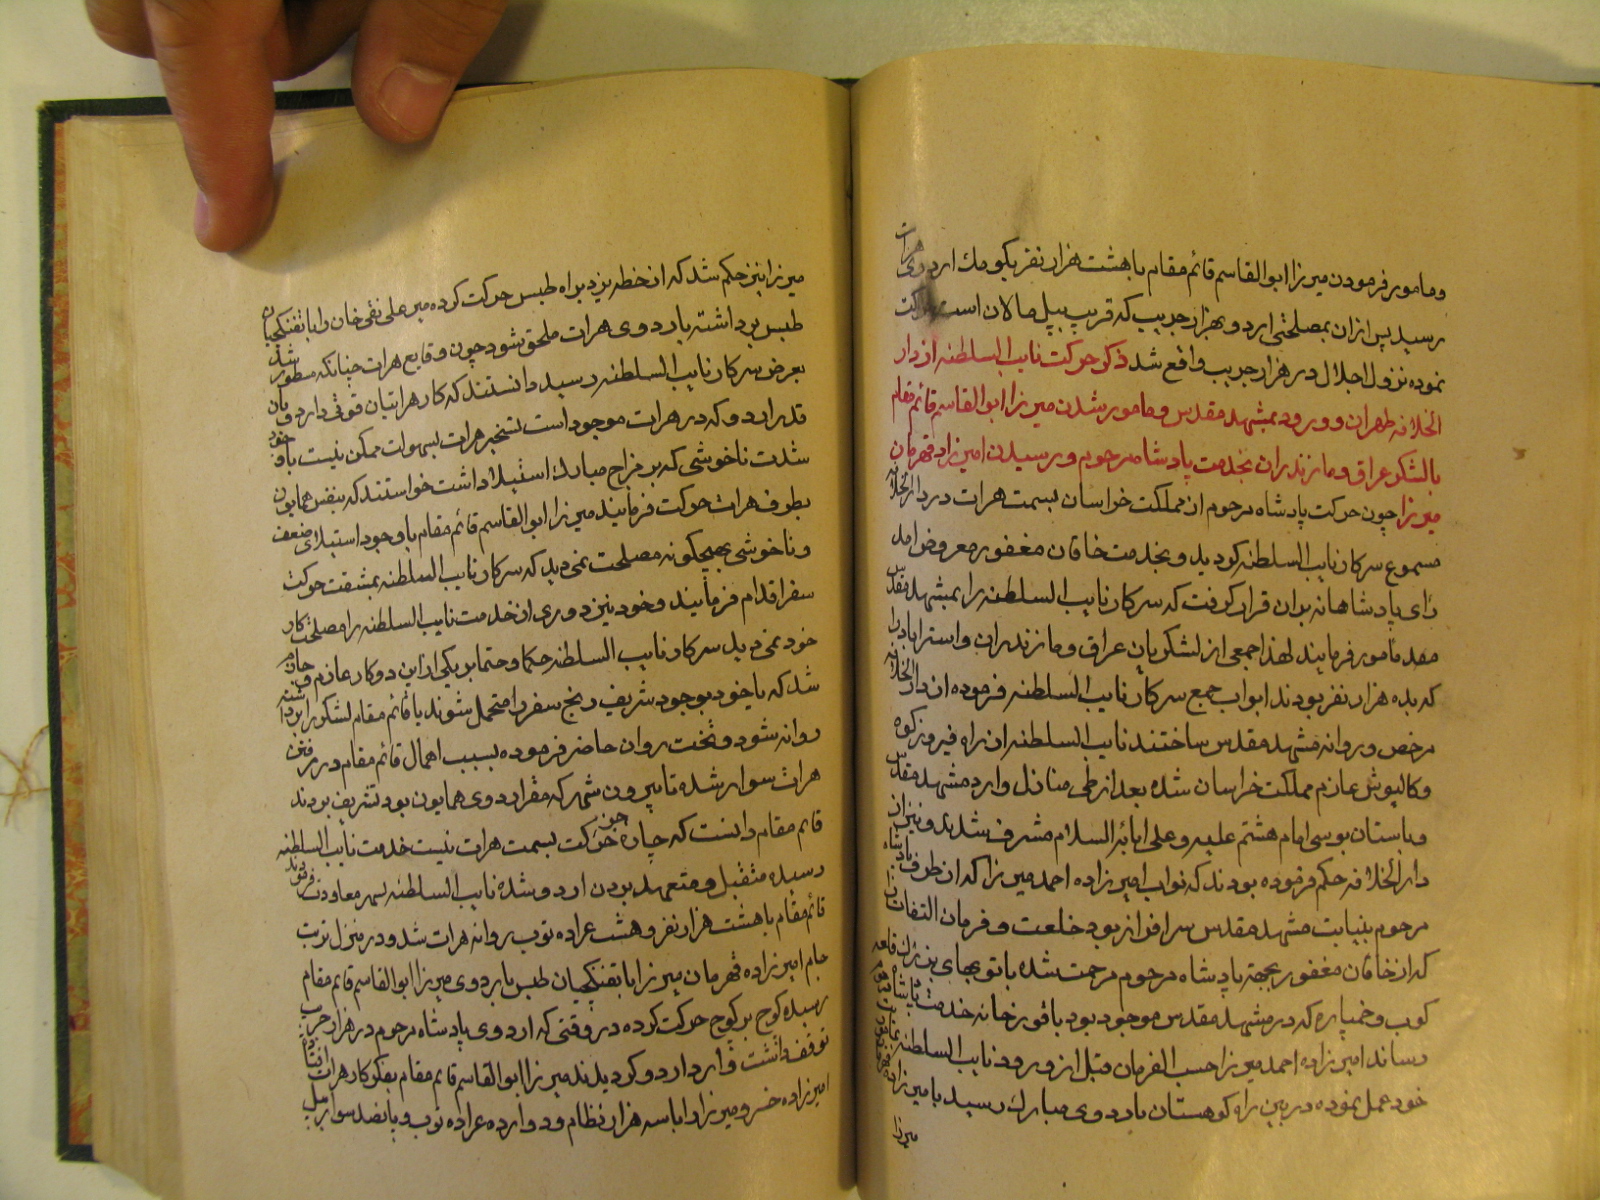 و مامور فرمودن میرزا ابوالقاسم قائم مقام با هشت هزار نفر بکومک اردوی هرات
رسید پس ازان بمصلحتی اردو بهزار جریب که قریب بپل مالان است حرکت
نموده نزول اجلال در هزار جریب واقع شد ذکر حرکت نایب السلطنه از دار
الخلافه طهران و ورود بمشهد مقدس و مامور شدن میرزا ابوالقاسم قائم مقام
بالشکر عراق و مازندران بخدمت پادشاه مرحوم و رسیدن امیرزاده قهرمان
میرزا چون حرکت پادشاه مرحوم از مملکت خراسان بسمت هرات در دارالخلافه
مسموع سرکار نایب السلطنه کردید و بخدمت خاقان مغفور معروض امد
رای پادشاهانه بران قرار کرفت که سرکار نایب السلطنه را بمشهد مقدس
مامور فرمایند لهذا جمعی از لشکریان عراق و مازندران و استراباد را
که بده هزار نفر بودند ابواب جمع سرکار نایب السلطنه فرموده از دارالخلافه
مرخص و روانه مشهد مقدس ساختند نایب السلطنه از راه فیروزکوه
و کالپوش عازم مملکت خراسان شده بعد از طی منازل وارد مشهد مقدس
و باستان بوسی امام هشتم علیه و علی ابائه السلام مشرف شدند و نیز از
دارالخلافه حکم فرموده بودند که نواب امیرزاده احمد میرزا که از طرف پادشاه
مرحوم بنیابت مشهد مقدس سرافراز بود خلعت و فرمان التفات
که از خاقان مغفور بجهة پادشاه مرحوم مرحمت شده با توبهای بزرك قلعه
کوب و خمپاره که در مشهد مقدس موجود بود با قورخانه خدمت پادشاه مرحوم
رساند امیرزاده احمد میرزا حسب الفرمان قبل از ورود نایب السلطنه
خود عمل نموده در بین راه کوهستان باردوی مبارك رسید بامیرزاده قهرمان
میرزا
میرزا نیز حکم شد که از خطه یزد براه طبس حرکت کرده میر علی نقی خان را با تفنکچیان
طبس برداشته باردوی هرات ملحق شود چون وقایع هرات چنانکه مسطور شد
بعرض سرکار نایب السلطنه رسید دانستند که کار هراتیان قوتی دارد و بان
قدر اردو که در هرات موجود است تسخیر هرات بسهولت ممکن نیست با وجود
شدت ناخوشی که بر مزاج مبارك استیلا داشت خواستند که بنفس همایون
بطرف هرات حرکت فرمایند میرزا ابوالقاسم قائم مقام با وجود استیلای ضعف
و ناخوشی بهیچکونه مصلحت نمی دید که سرکار نایب السلطنه بمشقت حرکت
سفر اقدام فرمایند و خود نیز دوری از خدمت نایب السلطنه را مصلحت کار
خود نمی دید سرکار نایب السلطنه حکما و حتما بر یکی از این دو کار عازم و جازم
شد که یا خود بوجود شریف رنج سفر را متحمل شوند یا قائم مقام لشکر را برداشته
روانه شود و تخت روان حاضر فرموده بسبب اهمال قائم مقام در رفتن
هرات سوار شده تا بیرون شهر که مقر اردوی همایون بود تشریف بردند
قائم مقام دانست که چاره جز حرکت بسمت هرات نیست خدمت نایب السلطنه
رسیده متقبل و متعهد بردن اردو شده نایب السلطنه بشهر معاودت فرمودند
قائم مقام با هشت هزار نفر و هشت عراده توب روانه هرات شد و در منزل تربت
جام امیرزاده قهرمان میرزا با تفنکچیان طبس باردوی میرزا ابوالقاسم قائم مقام
رسیده کوج بر کوج حرکت کرده در وقتی که اردوی پادشاه مرحوم در هزار جریب
توقف داشت وارد اردو کردیدند میرزا ابوالقاسم قائم مقام بفکر کار هرات افتاد
امیرزاده خسرو میرزا را با سه هزار نظام و دوازده عراده توب و پانصد سوار